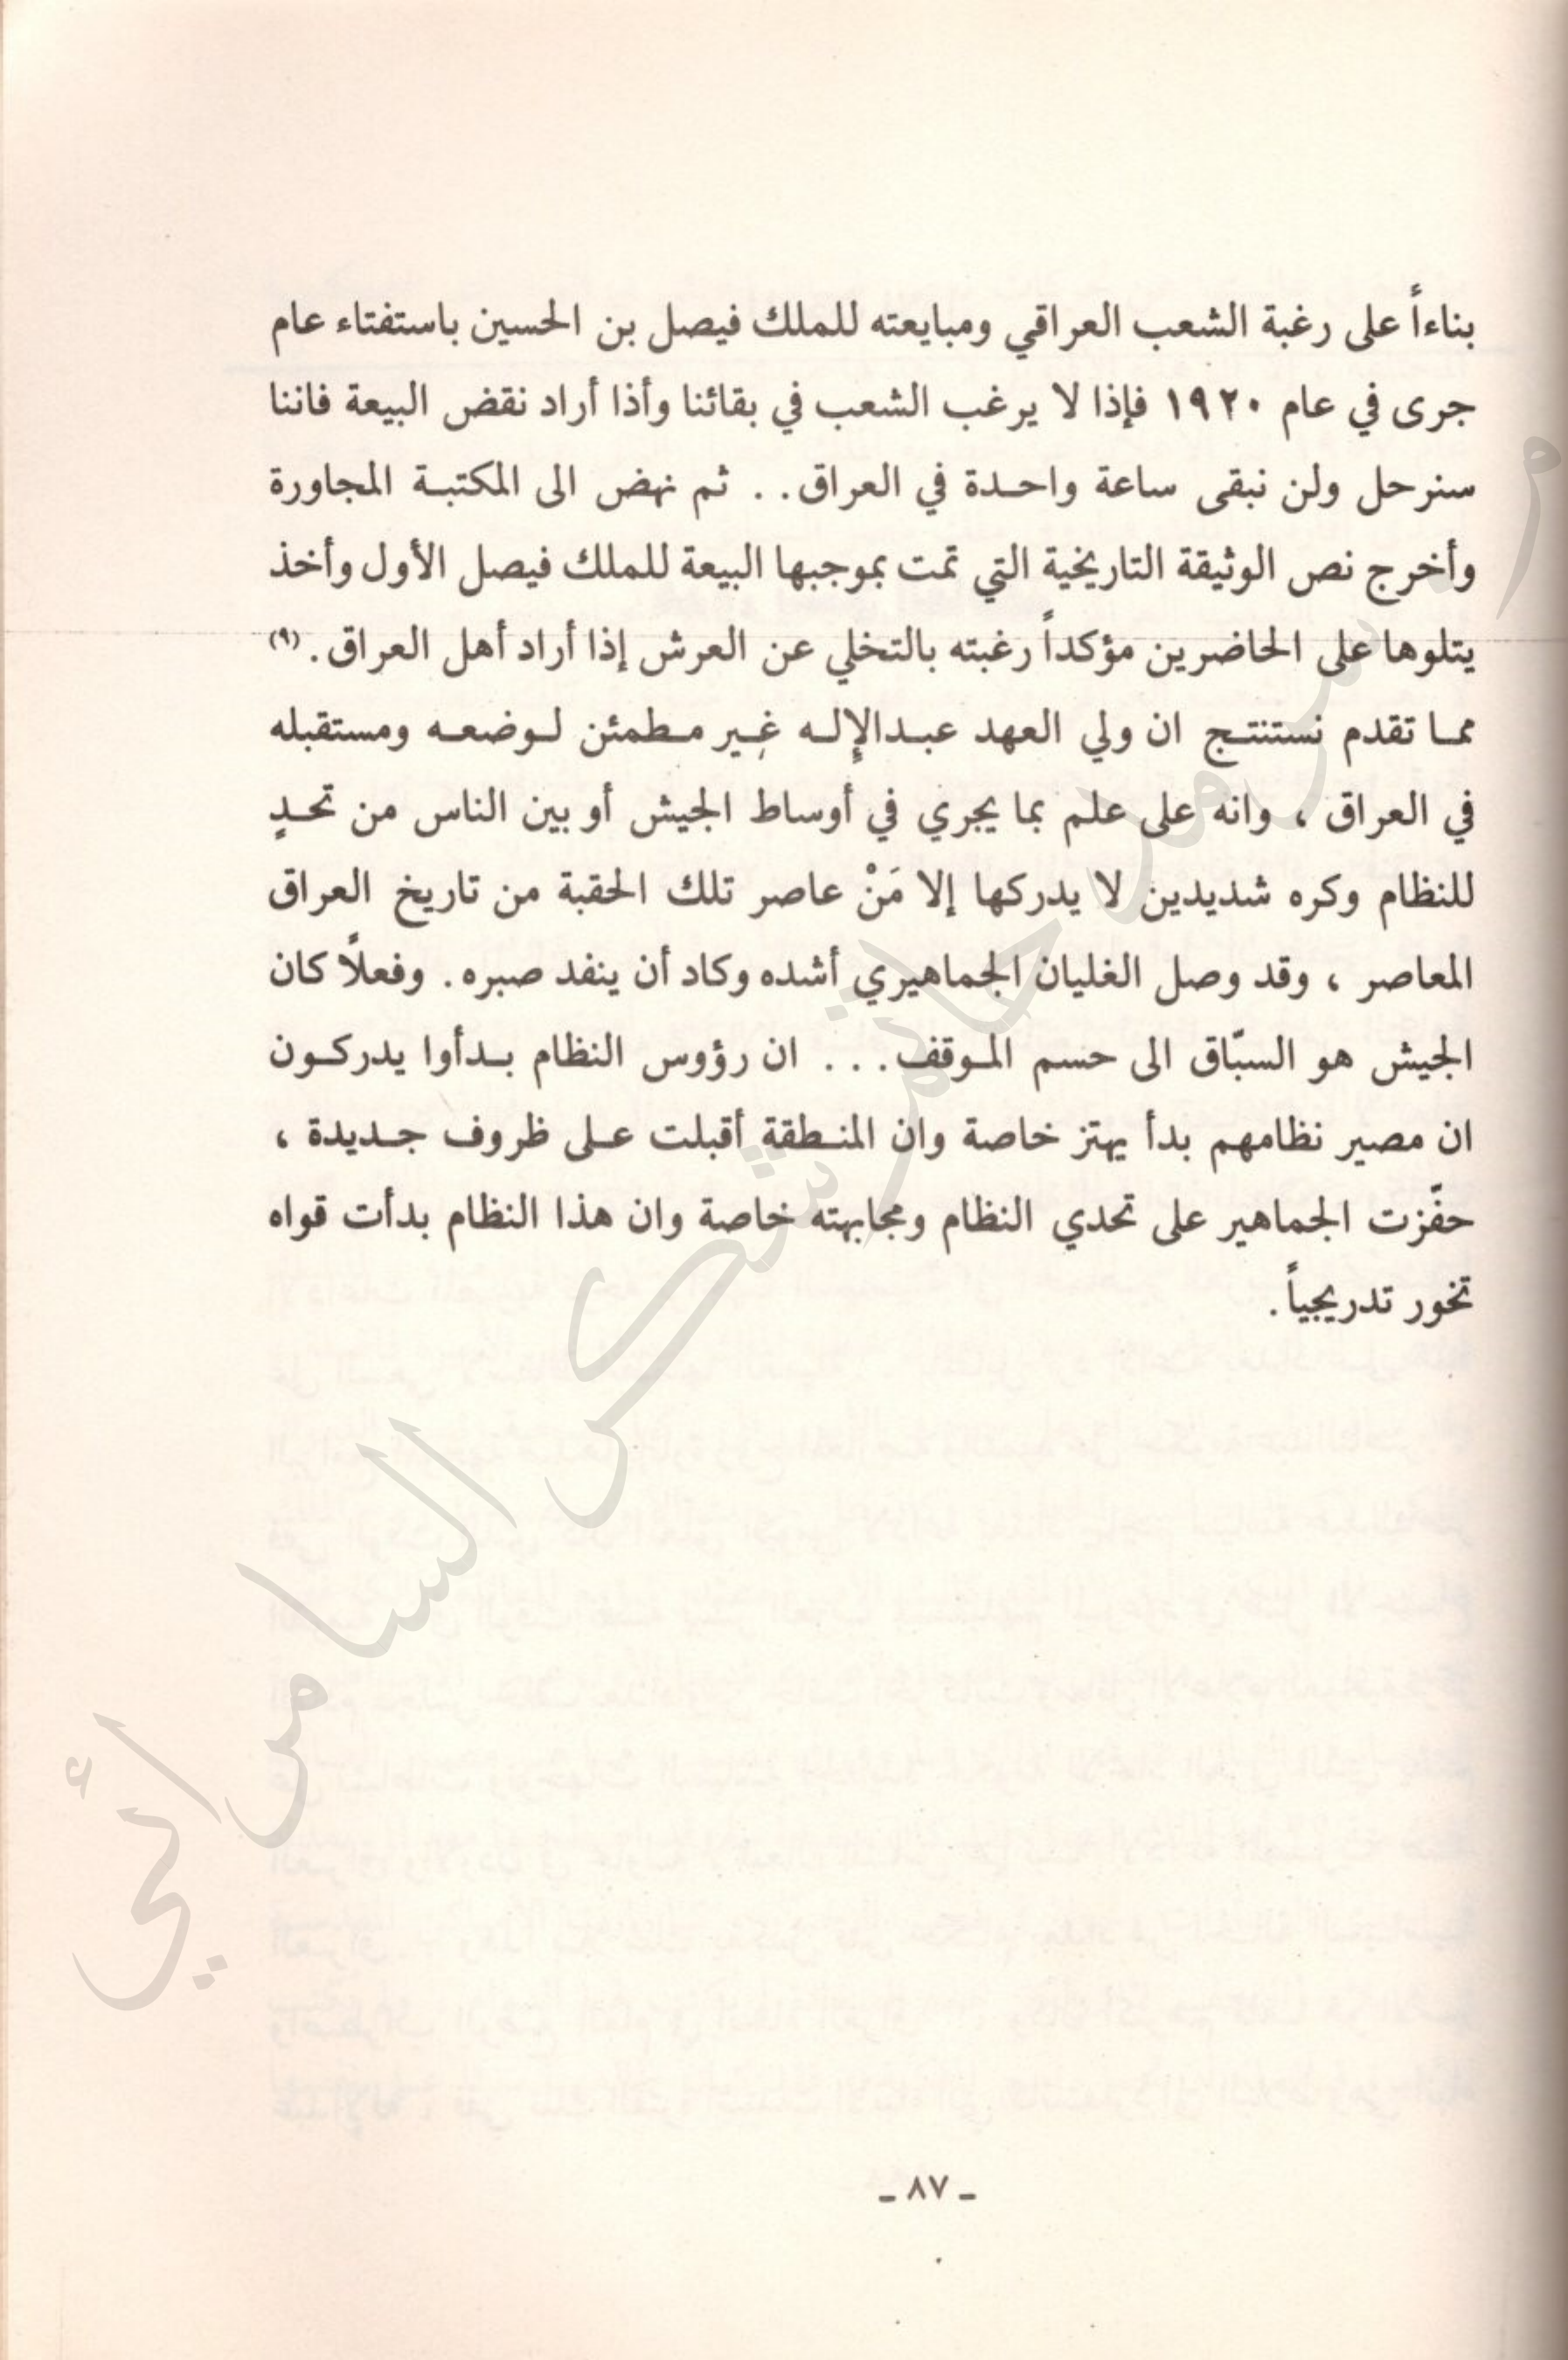 بناءاً على رغبة الشعب العراقي ومبايعته للملك فيصل بن الحسين باستفتاء عام
جرى في عام ١٩٢٠ فإذا لا يرغب الشعب في بقائنا وأذا أراد نقض البيعة فاننا
سنرحل ولن نبقى ساعة واحدة في العراق . . ثم نهض الى المكتبة المجاورة
وأخرج نص الوثيقة التاريخية التي تمت بموجبها البيعة للملك فيصل الأول وأخذ
يتلوها على الحاضرين مؤكداً رغبته بالتخلي عن العرش إذا أراد أهل العراق . (٩)
مما تقدم نستنتج ان ولي العهد عبدالإله غير مطمئن لوضعه ومستقبله
في العراق ، وانه على علم بما يجري في أوساط الجيش أو بين الناس من تحدٍ
للنظام وكره شديدين لا يدركها إلا مَنْ عاصر تلك الحقبة من تاريخ العراق
المعاصر ، وقد وصل الغليان الجماهيري أشده وكاد أن ينفد صبره . وفعلاً كان
الجيش هو السبّاق الى حسم الموقف . . . ان رؤوس النظام بدأوا يدركون
ان مصير نظامهم بدأ يهتز خاصة وان المنطقة أقبلت على ظروف جديدة ،
حفّزت الجماهير على تحدي النظام ومجابهته خاصة وان هذا النظام بدأت قواه
تخور تدريجياً .
سرمد حاتم شكر السامرائي
- ٨٧ -